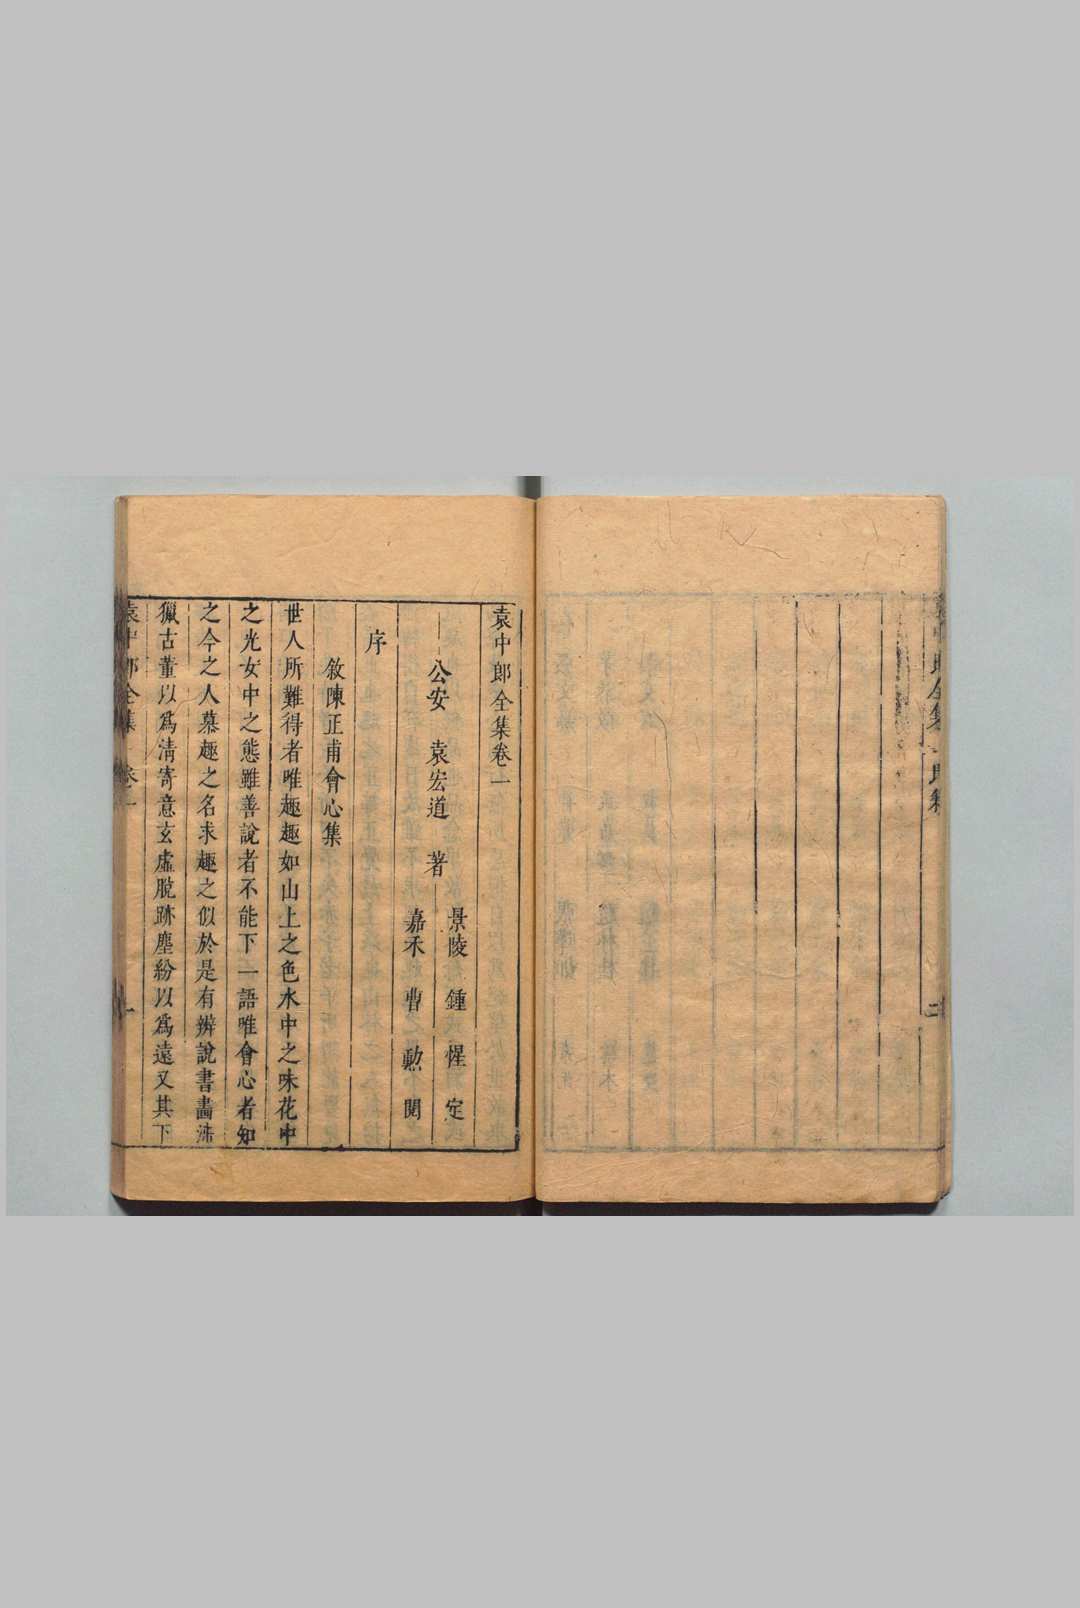 袁中郎全集卷一
公安　袁宏道　著
景陵　鍾惺　定
嘉禾　曹勲　閱
序
敘陳正甫會心集
世人所難得者唯趣趣如山上之色水中之味花中
之光女中之態雖善說者不能下一語唯會心者知
之今之人慕趣之名求趣之似於是有辨說書畫涉
獵古董以爲淸寄意玄虛脫跡塵紛以爲遠又其下
袁中郎全集　卷一　一